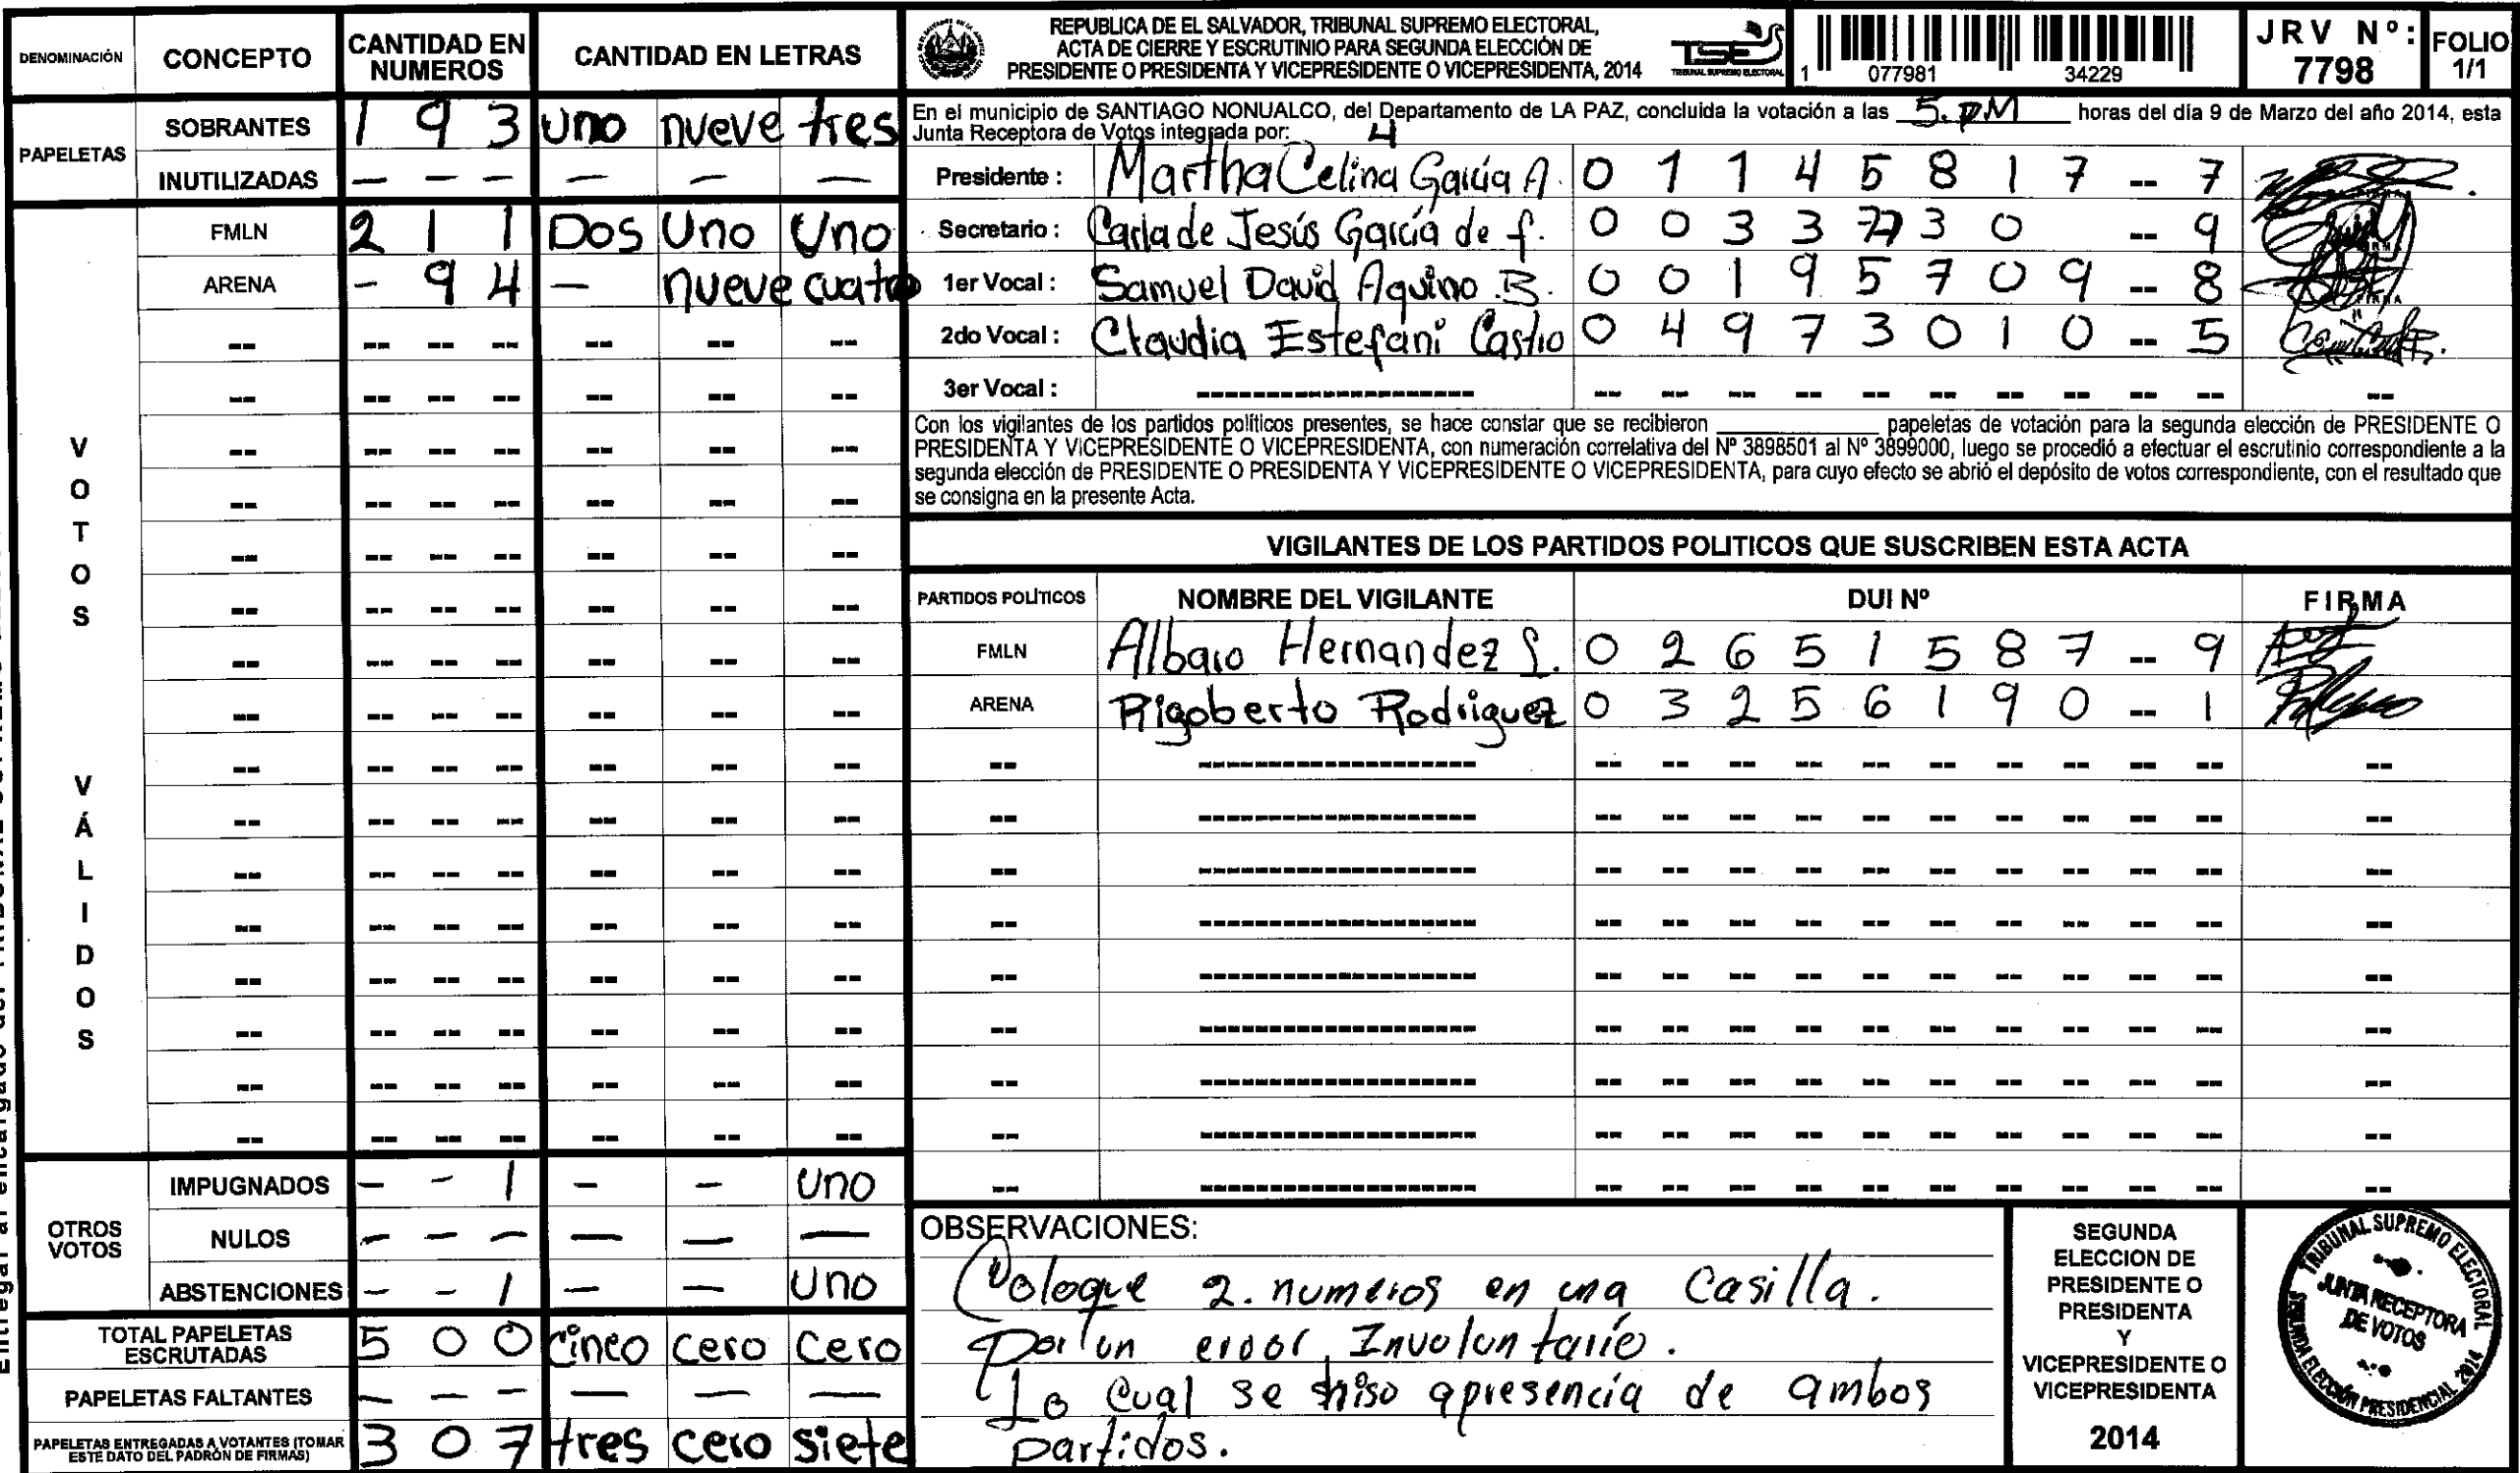 DENOMINACIÓN CONCEPTO CANTIDAD EN NUMEROS CANTIDAD EN LETRAS
PAPELETAS
SOBRANTES 1 9 3 uno nueve tres
INUTILIZADAS — — — — — —
VOTOS VÁLIDOS
FMLN 2 1 1 Dos Uno Uno
ARENA - 9 4 - nueve cuatro
OTROS VOTOS
IMPUGNADOS - - 1 - - uno
NULOS — — — — — —
ABSTENCIONES - - 1 — — uno
TOTAL PAPELETAS ESCRUTADAS 5 0 0 cinco cero cero
PAPELETAS FALTANTES — — — — — —
PAPELETAS ENTREGADAS A VOTANTES (TOMAR ESTE DATO DEL PADRÓN DE FIRMAS) 3 0 7 tres cero siete
REPUBLICA DE EL SALVADOR, TRIBUNAL SUPREMO ELECTORAL,
ACTA DE CIERRE Y ESCRUTINIO PARA SEGUNDA ELECCIÓN DE
PRESIDENTE O PRESIDENTA Y VICEPRESIDENTE O VICEPRESIDENTA, 2014
TSE
TRIBUNAL SUPREMO ELECTORAL
1 077981 34229
JRV Nº: 7798
FOLIO 1/1
En el municipio de SANTIAGO NONUALCO, del Departamento de LA PAZ, concluida la votación a las 5. PM horas del día 9 de Marzo del año 2014, esta
Junta Receptora de Votos integrada por: 4
Presidente : Martha Celina García A. 0 1 1 4 5 8 1 7 -- 7
Secretario : Carla de Jesús García de f. 0 0 3 3 77 3 0 -- 9
1er Vocal : Samuel David Aquino B. 0 0 1 9 5 7 0 9 -- 8
2do Vocal : Claudia Estefani Castro 0 4 9 7 3 0 1 0 -- 5
3er Vocal :
Con los vigilantes de los partidos políticos presentes, se hace constar que se recibieron ________ papeletas de votación para la segunda elección de PRESIDENTE O
PRESIDENTA Y VICEPRESIDENTE O VICEPRESIDENTA, con numeración correlativa del Nº 3898501 al Nº 3899000, luego se procedió a efectuar el escrutinio correspondiente a la
segunda elección de PRESIDENTE O PRESIDENTA Y VICEPRESIDENTE O VICEPRESIDENTA, para cuyo efecto se abrió el depósito de votos correspondiente, con el resultado que
se consigna en la presente Acta.
VIGILANTES DE LOS PARTIDOS POLITICOS QUE SUSCRIBEN ESTA ACTA
PARTIDOS POLÍTICOS NOMBRE DEL VIGILANTE DUI Nº FIRMA
FMLN Albaro Hernandez S. 0 2 6 5 1 5 8 7 -- 9
ARENA Rigoberto Rodriguez 0 3 2 5 6 1 9 0 -- 1
OBSERVACIONES:
Coloque 2. numeros en una Casilla.
Por un error Involuntario.
Lo Cual se hiso apresencia de ambos
partidos.
SEGUNDA
ELECCION DE
PRESIDENTE O
PRESIDENTA
Y
VICEPRESIDENTE O
VICEPRESIDENTA
2014
TRIBUNAL SUPREMO ELECTORAL
JUNTA RECEPTORA
DE VOTOS
SEGUNDA ELECCIÓN PRESIDENCIAL 2014